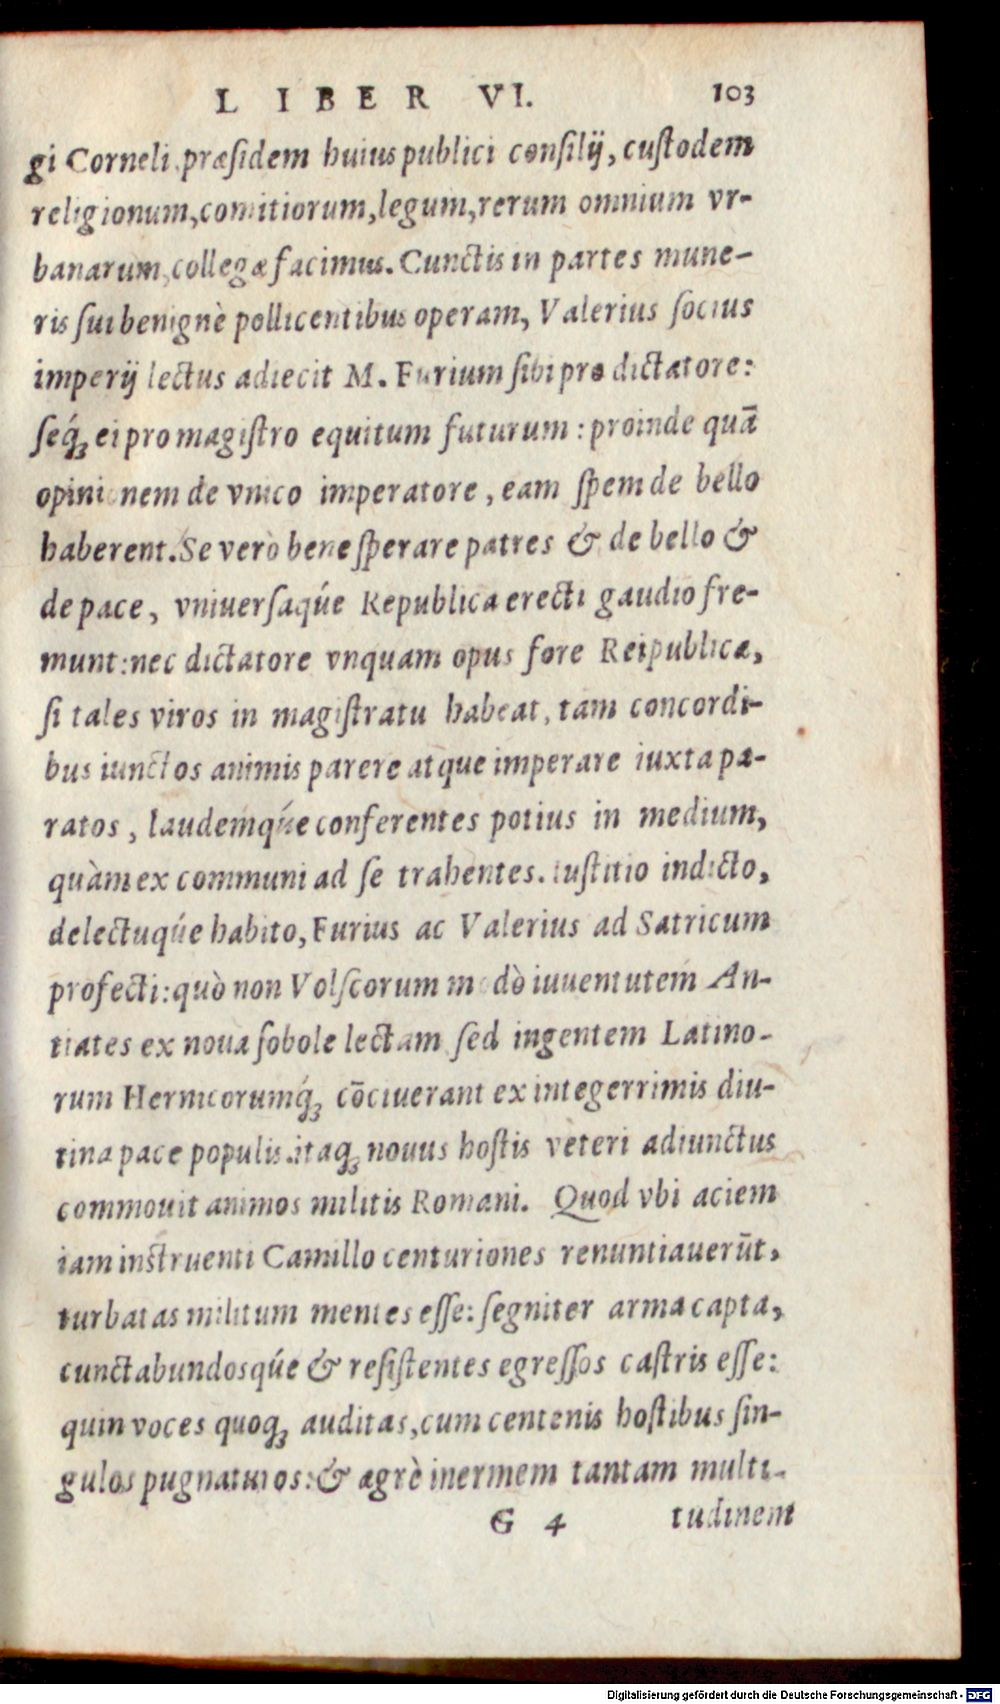 LIBER VI. 103
gi Corneli præſidem huius publici conſilij, cuſtodem
religionum, comitiorum, legum, rerum omnium vr-
banarum, collegæ facimus. Cunctis in partes mune-
ris ſui benignè pollicentibus operam, Valerius ſocius
imperij lectus adiecit M. Furium ſibi pro dictatore:
ſeq́ꝫ ei pro magiſtro equitum futurum: proinde quā
opinionem de vnico imperatore, eam ſpem de bello
haberent. Se verò bene ſperare patres & de bello &
de pace, vniuerſaqúe Republica erecti gaudio fre-
munt: nec dictatore vnquam opus fore Reipublicæ,
ſi tales viros in magiſtratu habeat, tam concordi-
bus iunctos animis parere atque imperare iuxta pa-
ratos, laudemqúe conferentes potius in medium,
quàm ex communi ad ſe trahentes. Iuſtitio indicto,
delectuqúe habito, Furius ac Valerius ad Satricum
profecti: quò non Volſcorum modò iuuentutem An-
tiates ex noua ſobole lectam ſed ingentem Latino-
rum Hernicorumq́ꝫ cōciuerant ex integerrimis diu-
tina pace populis. itaqꝫ nouus hoſtis veteri adiunctus
commouit animos militis Romani. Quod vbi aciem
iam inſtruenti Camillo centuriones renuntiauerūt,
turbatas militum mentes eſſe: ſegniter arma capta,
cunctabundosqúe & reſiſtentes egreſſos caſtris eſſe:
quin voces quoqꝫ auditas, cum centenis hoſtibus ſin-
gulos pugnaturos: & ægrè inermem tantam multi-
G 4 tudinem
Digitalisierung gefördert durch die Deutsche Forschungsgemeinschaft - DFG